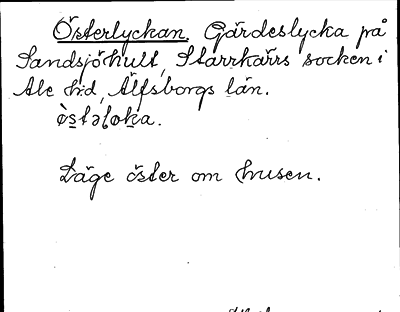 Österlyckan. Gärdeslycka på
Sandsjöhult, Starrkärrs socken i
Ale h:d, Älfsborgs län.
Läge öster om husen.